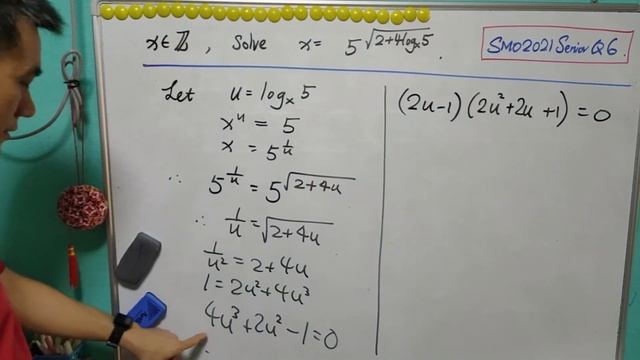 x∈ℤ, Solve x = 5^√(2+4log_x 5).
SMO2021 Senior Q6.
Let u = log_x 5
x^u = 5
x = 5^(1/u)
∴ 5^(1/u) = 5^√(2+4u)
∴ 1/u = √(2+4u)
1/u² = 2+4u
1 = 2u²+4u³
4u³+2u²-1=0
(2u-1)(2u²+2u+1)=0